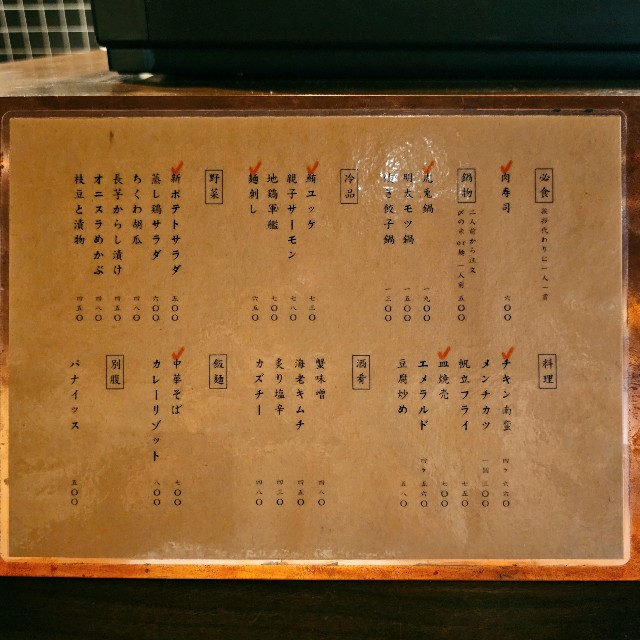 必食
お通代わりに一人一貫
肉寿司 六〇〇
鍋物
二人前から注文
〆の米or麺 一人前 五〇〇
一九〇〇
明太モツ鍋 一五〇〇
炊き餃子鍋 一三〇〇
冷品
鮪ユッケ 七二〇
親子サーモン 七八〇
地鶏軍艦 七〇〇
麺刺し 六五〇
野菜
新ポテトサラダ 五〇〇
蒸し鶏サラダ 六〇〇
ちくわ胡瓜 四八〇
長芋からし漬け 四五〇
オニスラめかぶ 四八〇
枝豆と漬物 四五〇
料理
チキン南蛮 四ヶ 六六〇
メンチカツ 一個 三〇〇
帆立フライ 七五〇
皿焼売 七〇〇
エメラルド 四ヶ 五六〇
豆腐炒め 五八〇
酒肴
蟹味噌 四八〇
海老キムチ 四五〇
炙り塩辛 四三〇
カズチー 四八〇
飯麺
中華そば 七〇〇
カレーリゾット 八〇〇
別腹
パナイッス 五〇〇